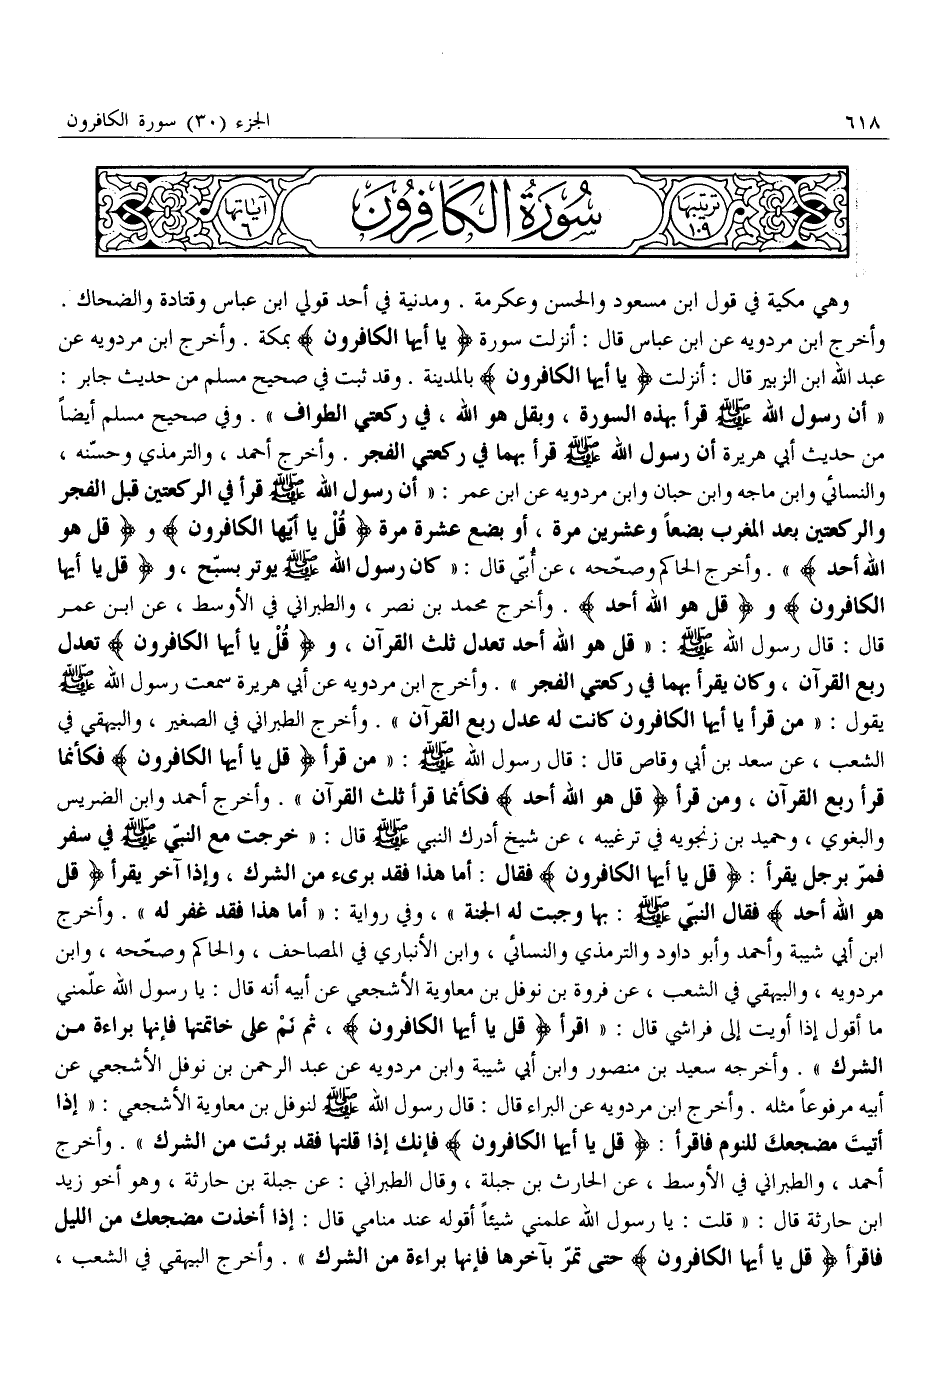 ٦١٨
الجزء (٣٠) سورة الكافرون
ترتيبها ١٠٩
سُورَةُ الكَافِرُونَ
آياتها ٦
وهي مكية في قول ابن مسعود والحسن وعكرمة . ومدنية في أحد قولي ابن عباس وقتادة والضحاك .
وأخرج ابن مردويه عن ابن عباس قال : أنزلت سورة ﴿ يا أيها الكافرون ﴾ بمكة . وأخرج ابن مردويه عن
عبد الله ابن الزبير قال : أنزلت ﴿ يا أيها الكافرون ﴾ بالمدينة . وقد ثبت في صحيح مسلم من حديث جابر :
« أن رسول الله ﷺ قرأ بهذه السورة ، وبقل هو الله ، في ركعتي الطواف » . وفي صحيح مسلم أيضاً
من حديث أبي هريرة أن رسول الله ﷺ قرأ بهما في ركعتي الفجر . وأخرج أحمد ، والترمذي وحسّنه ،
والنسائي وابن ماجه وابن حبان وابن مردويه عن ابن عمر : « أن رسول الله ﷺ قرأ في الركعتين قبل الفجر
والركعتين بعد المغرب بضعاً وعشرين مرة ، أو بضع عشرة مرة ﴿ قُلْ يا أيّها الكافرون ﴾ و ﴿ قل هو
الله أحد ﴾ » . وأخرج الحاكم وصحّحه ، عن أُبيّ قال : « كان رسول الله ﷺ يوتر بسبّح ، و ﴿ قل يا أيها
الكافرون ﴾ و ﴿ قل هو الله أحد ﴾ . وأخرج محمد بن نصر ، والطبراني في الأوسط ، عن ابن عمر
قال : قال رسول الله ﷺ : « قل هو الله أحد تعدل ثلث القرآن ، و ﴿ قُلْ يا أيها الكافرون ﴾ تعدل
ربع القرآن ، وكان يقرأ بهما في ركعتي الفجر » . وأخرج ابن مردويه عن أبي هريرة سمعت رسول الله ﷺ
يقول : « من قرأ يا أيها الكافرون كانت له عدل ربع القرآن » . وأخرج الطبراني في الصغير ، والبيهقي في
الشعب ، عن سعد بن أبي وقاص قال : قال رسول الله ﷺ : « من قرأ ﴿ قل يا أيها الكافرون ﴾ فكأنما
قرأ ربع القرآن ، ومن قرأ ﴿ قل هو الله أحد ﴾ فكأنما قرأ ثلث القرآن » . وأخرج أحمد وابن الضريس
والبغوي ، وحميد بن زنجويه في ترغيبه ، عن شيخ أدرك النبي ﷺ قال : « خرجت مع النبيّ ﷺ في سفر
فمرّ برجل يقرأ : ﴿ قل يا أيها الكافرون ﴾ فقال : أما هذا فقد برىء من الشرك ، وإذا آخر يقرأ ﴿ قل
هو الله أحد ﴾ فقال النبيّ ﷺ : بها وجبت له الجنة » ، وفي رواية : « أما هذا فقد غفر له » . وأخرج
ابن أبي شيبة وأحمد وأبو داود والترمذي والنسائي ، وابن الأنباري في المصاحف ، والحاكم وصحّحه ، وابن
مردويه ، والبيهقي في الشعب ، عن فروة بن نوفل بن معاوية الأشجعي عن أبيه أنه قال : يا رسول الله علّمني
ما أقول إذا أويت إلى فراشي قال : « اقرأ ﴿ قل يا أيها الكافرون ﴾ ، ثم نَمْ على خاتمتها فإنها براءة من
الشرك » . وأخرجه سعيد بن منصور وابن أبي شيبة وابن مردويه عن عبد الرحمن بن نوفل الأشجعي عن
أبيه مرفوعاً مثله . وأخرج ابن مردويه عن البراء قال : قال رسول الله ﷺ لنوفل بن معاوية الأشجعي : « إذا
أتيتَ مضجعكَ للنوم فاقرأ : ﴿ قل يا أيها الكافرون ﴾ فإنك إذا قلتها فقد برئت من الشرك » . وأخرج
أحمد ، والطبراني في الأوسط ، عن الحارث بن جبلة ، وقال الطبراني : عن جبلة بن حارثة ، وهو أخو زيد
ابن حارثة قال : « قلت : يا رسول الله علمني شيئاً أقوله عند منامي قال : إذا أخذت مضجعك من الليل
فاقرأ ﴿ قل يا أيها الكافرون ﴾ حتى تمرّ بآخرها فإنها براءة من الشرك » . وأخرج البيهقي في الشعب ،